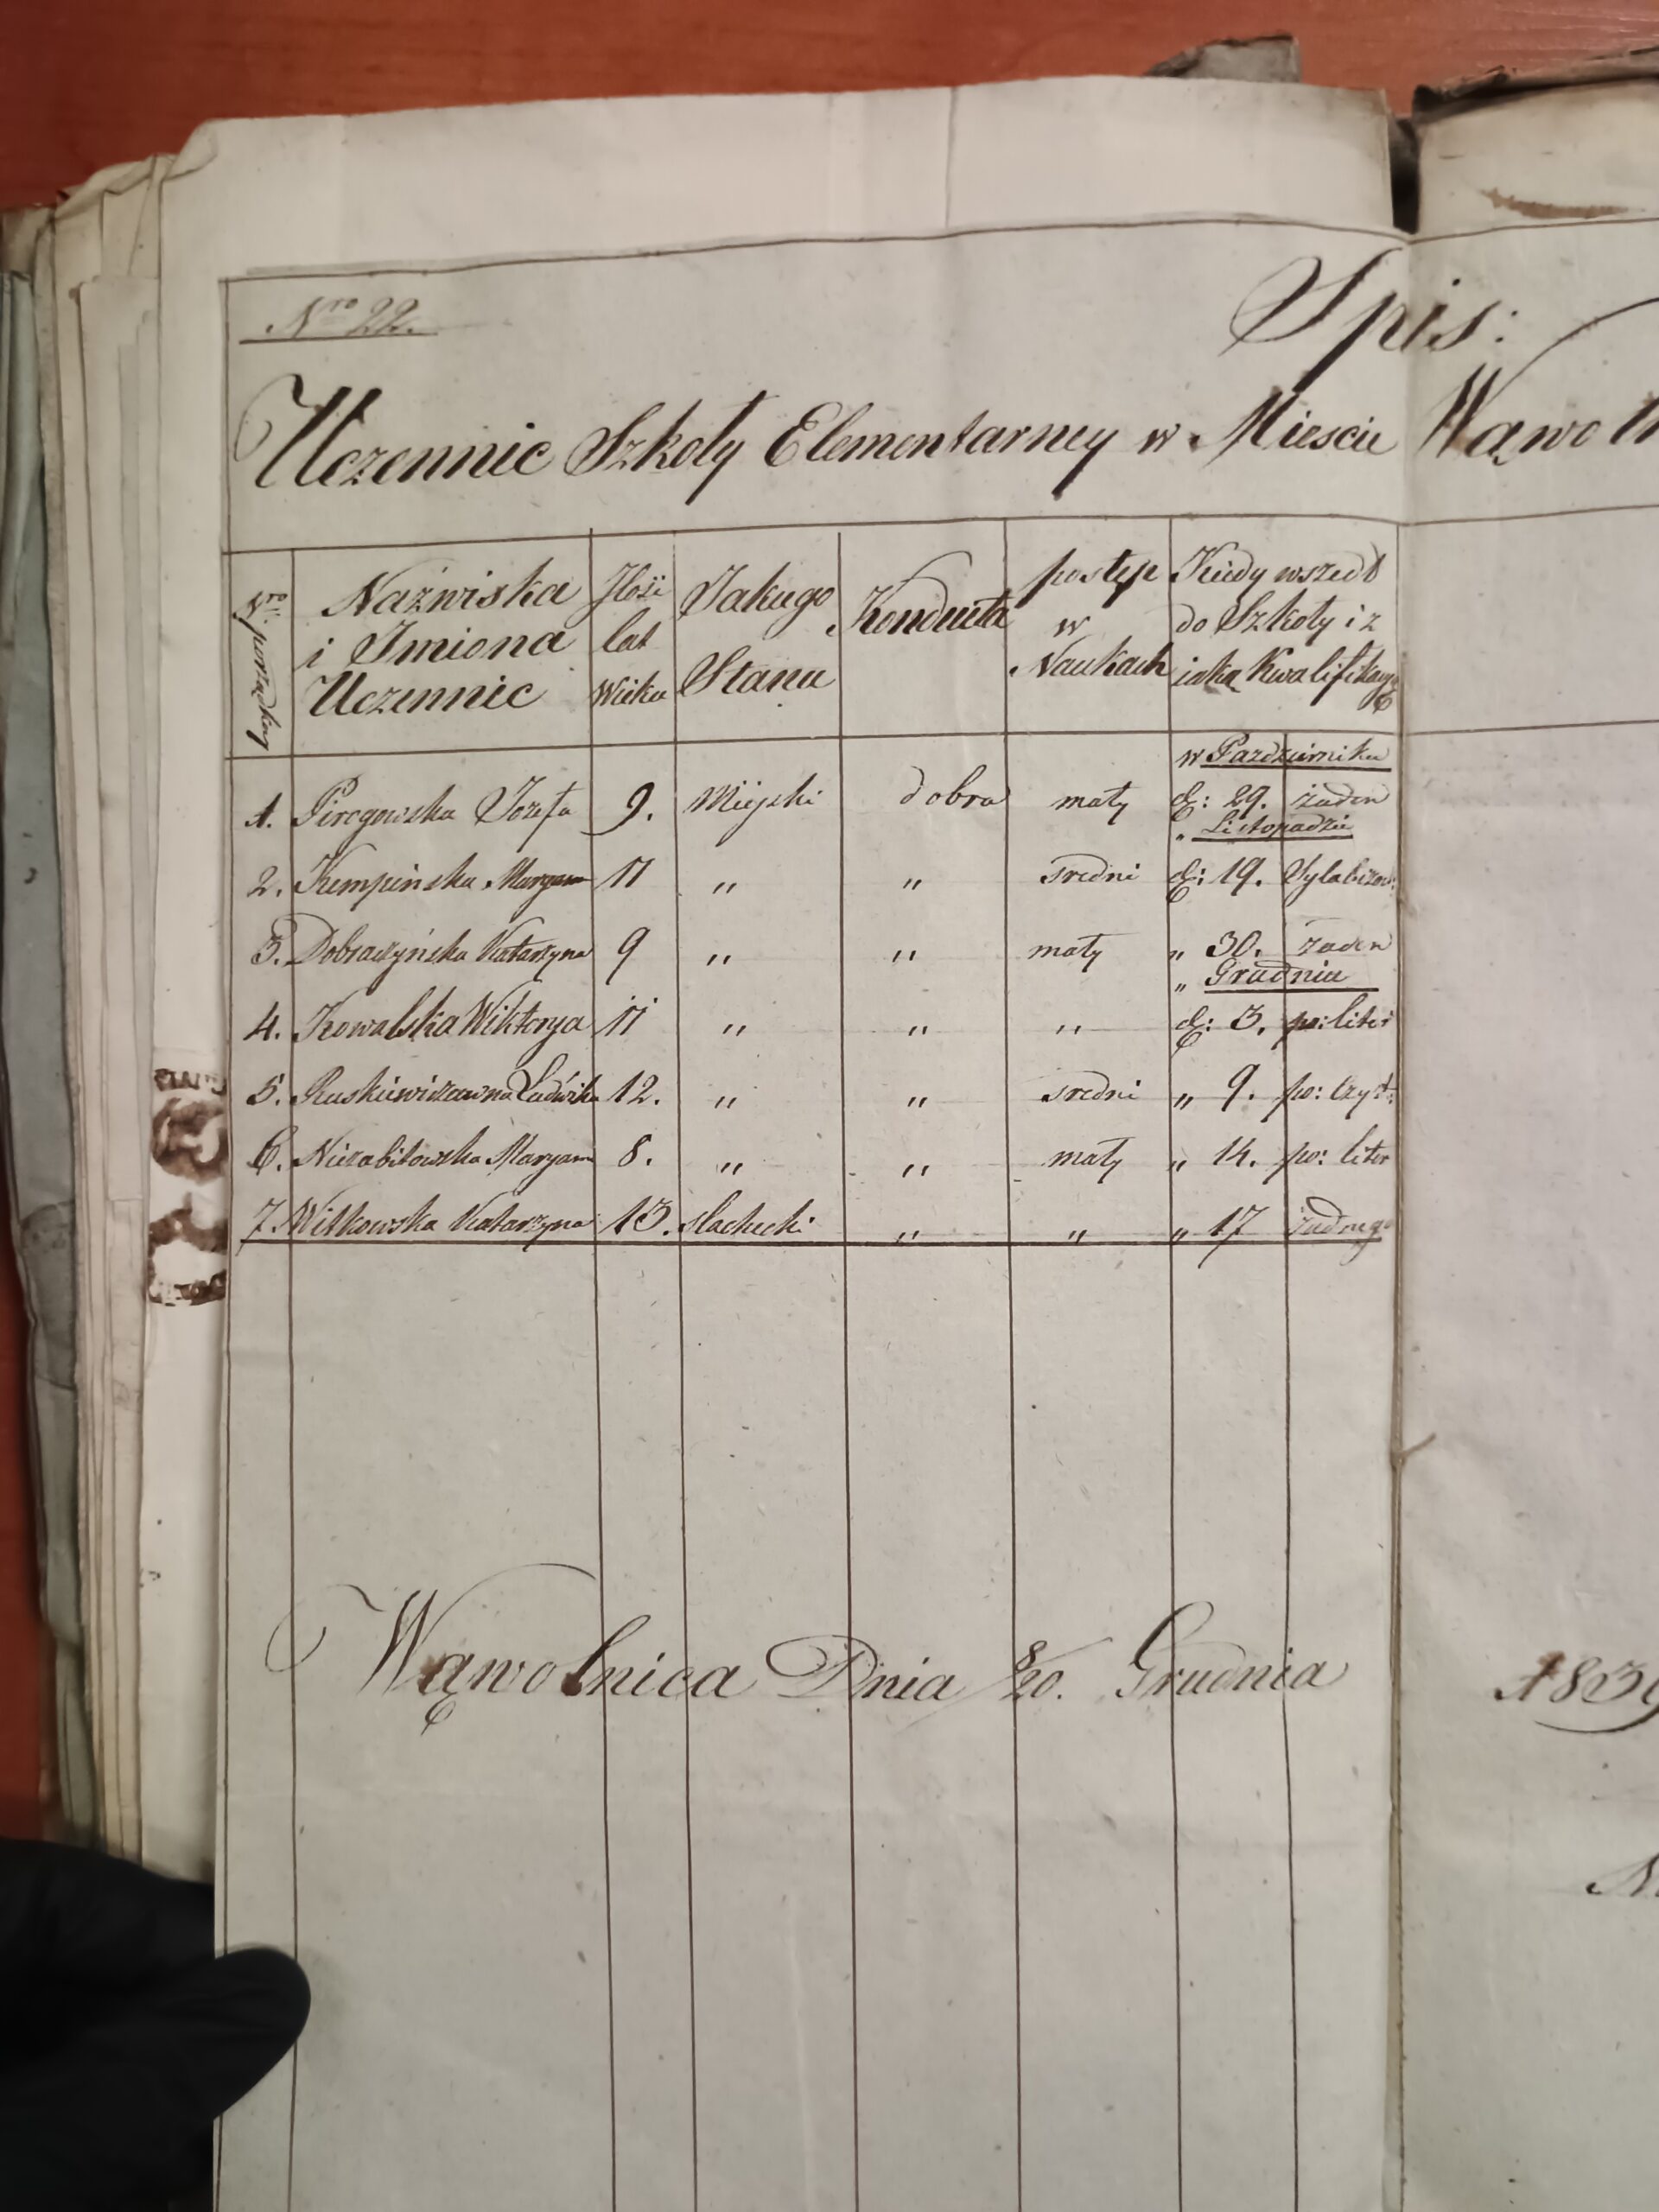 Nro 22.
Spis:
Uczennic Szkoły Elementarney w Miescie Wąwoln
Nro: porządkoy
Nazwiska i Imiona Uczennic
Ilość lat Wieku
Jakiego Stanu
Konduita
postęp w Naukach
Kiedy wszedł do Szkoły i z iaką Kwalifikacyą
w Pazdzierniku
1. Pirogowska Józefa 9. Miejski dobra mały d: 29. żaden
„ Listopadzie
2. Kempińska Maryanna 11 „ „ sredni d: 19. Sylabizow:
3. Dobraczyńska Katarzyna 9 „ „ mały „ 30. żaden
„ Grudniu
4. Kowalska Wiktorya 11 „ „ „ d: 3. po: liter
5. Ruskiewiczowna Ludwika 12. „ „ sredni „ 9. po: Czyt:
6. Niezabitowska Maryann 8. „ „ mały „ 14. po: liter
7. Witkowska Katarzyna 13. slachecki „ „ „ 17 żadnego
Wąwolnica Dnia 8/20. Grudnia 1839